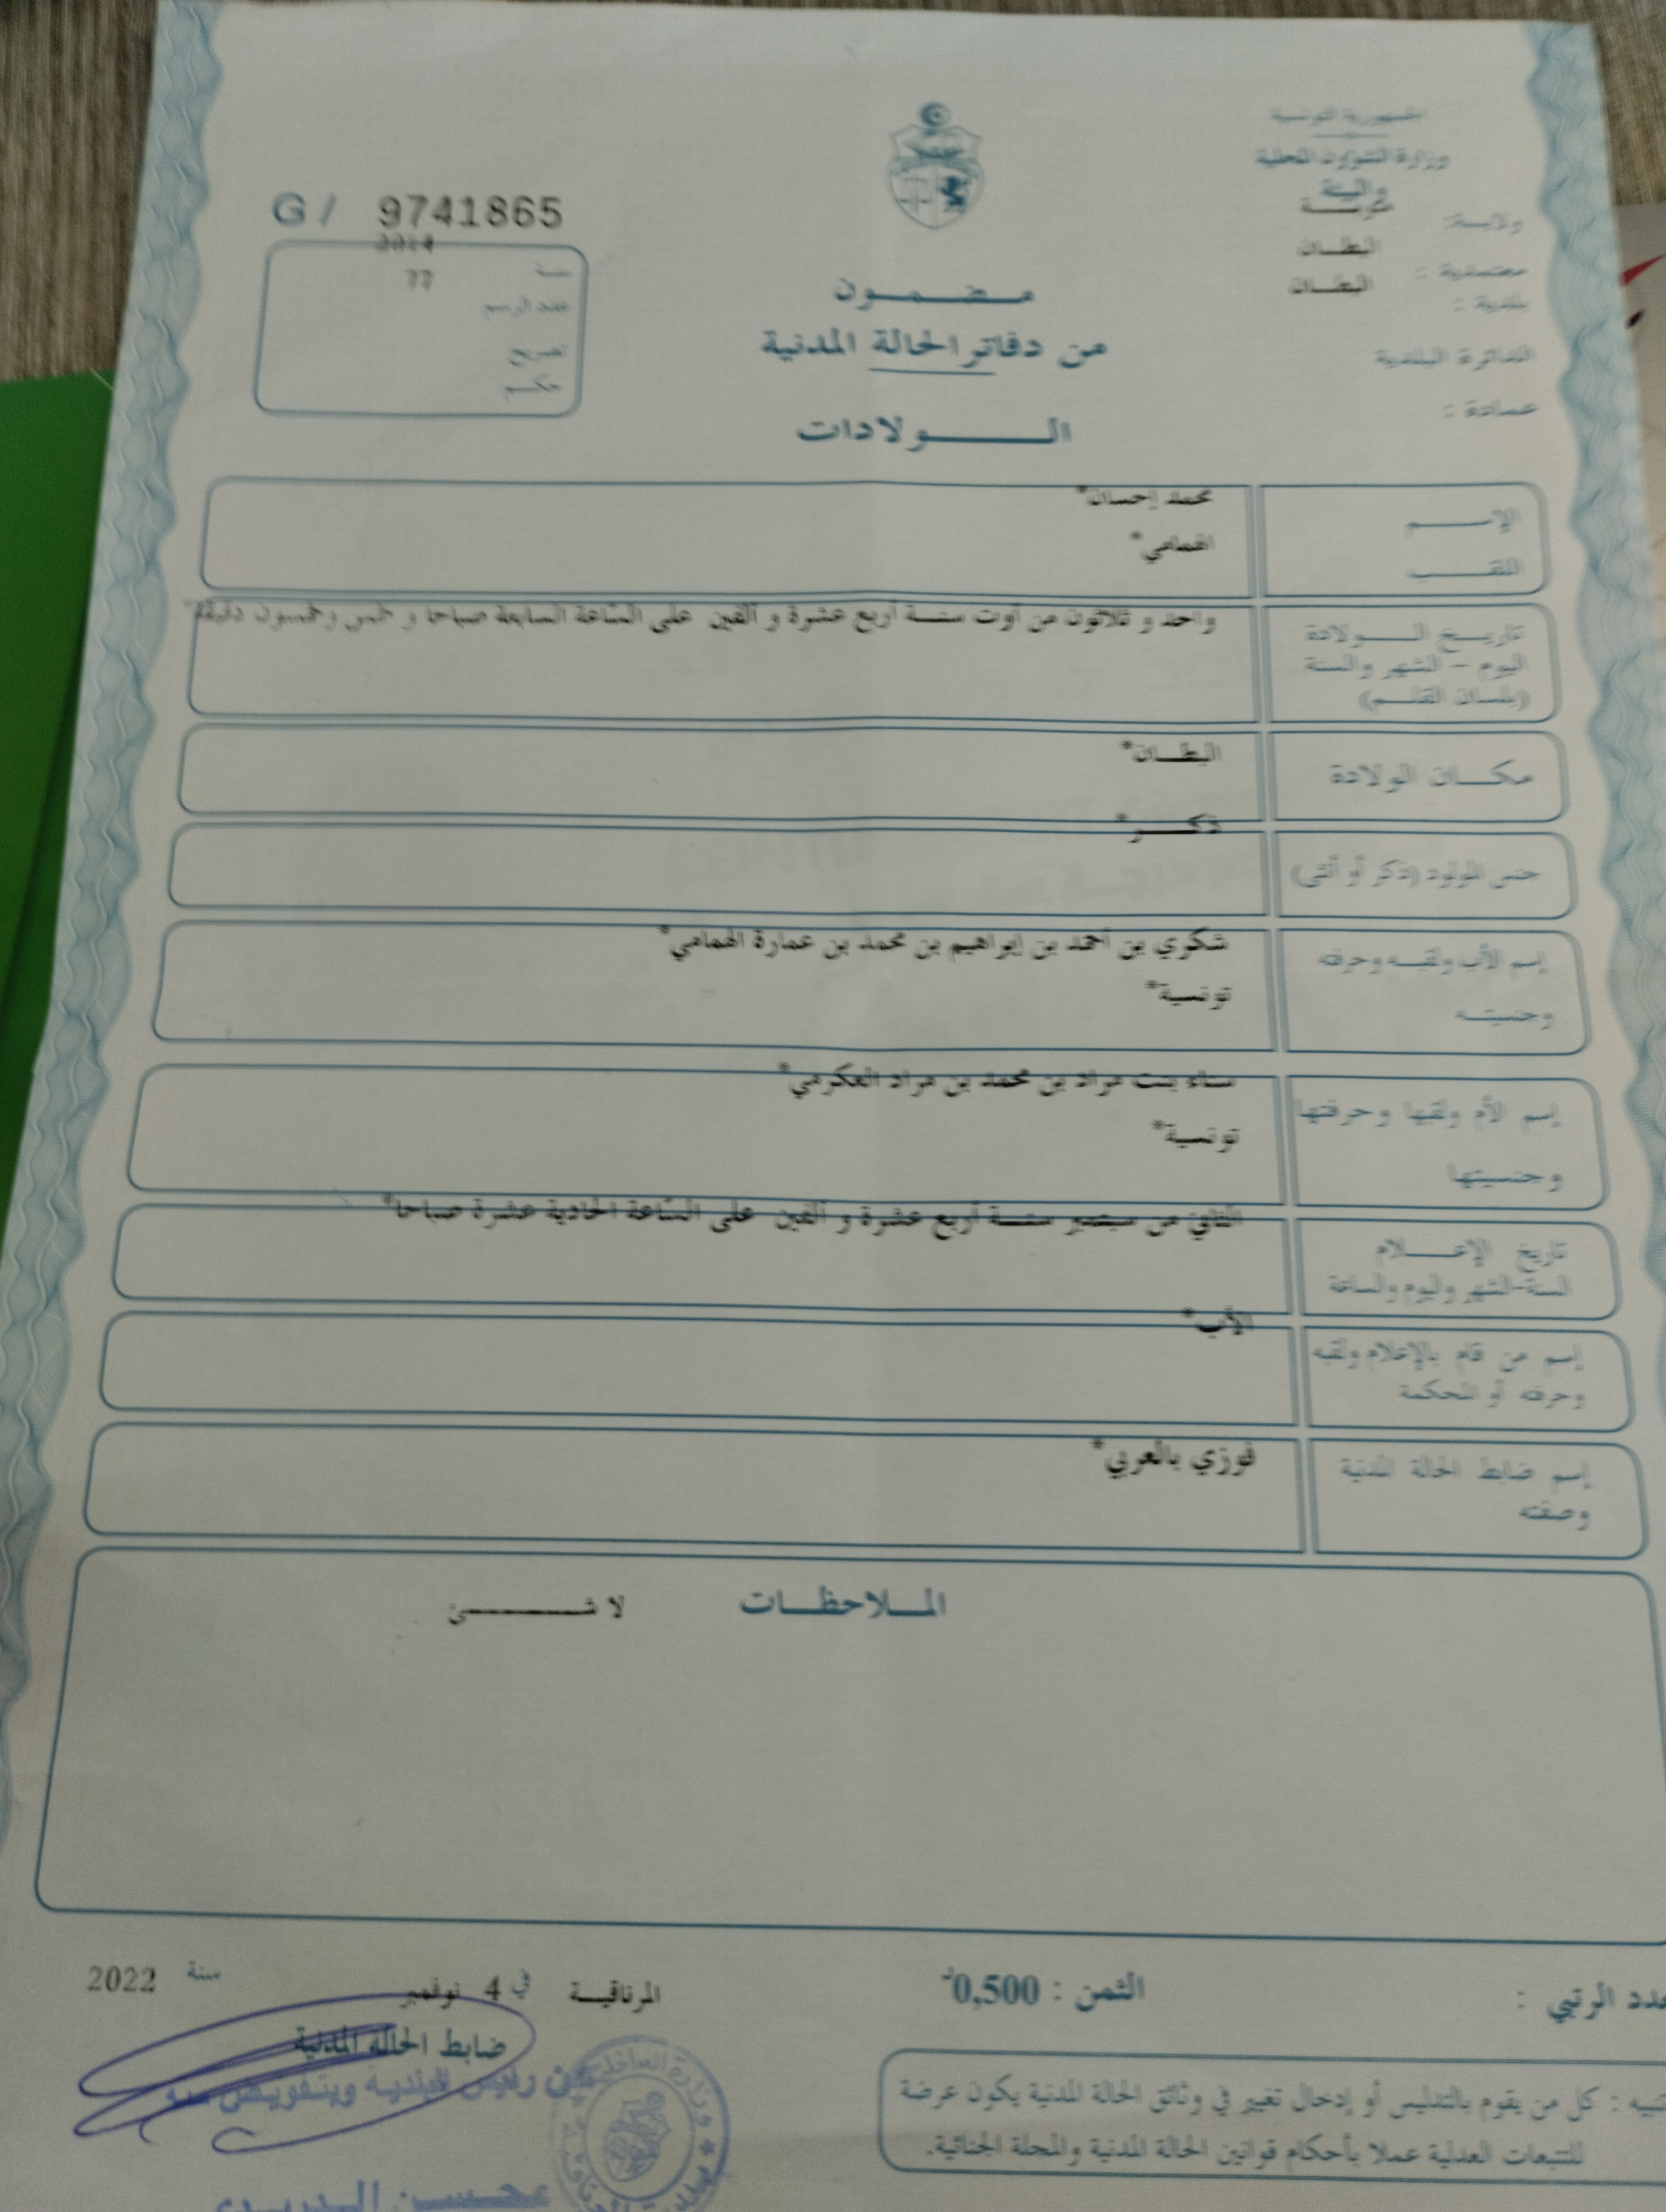 الجمهورية التونسية
وزارة الشؤون المحلية
والبيئة
ولاية: منوبة
معتمدية : البطان
بلدية : البطان
الدائرة البلدية
عمادة :
G / 9741865
سنة 2014
عدد الرسم 77
تصريح
حكم
مضمون
من دفاتر الحالة المدنية
الولادات
الإسم محمد إحسان*
اللقب الهمامي*
تاريخ الولادة واحد و ثلاثون من أوت سنة أربع عشرة و ألفين على الساعة السابعة صباحا و خمس وخمسون دقيقة*
اليوم - الشهر والسنة
(بلسان القلم)
مكان الولادة البطان*
جنس المولود (ذكر أو أنثى) ذكر*
إسم الأب ولقبه وحرفته شكري بن أحمد بن إبراهيم بن محمد بن عمارة الهمامي*
وجنسيته تونسية*
إسم الأم ولقبها وحرفتها سناء بنت مراد بن محمد بن مراد العكرمي*
وجنسيتها تونسية*
تاريخ الإعلام الثاني من سبتمبر سنة أربع عشرة و ألفين على الساعة الحادية عشرة صباحا*
السنة-الشهر واليوم والساعة
إسم من قام بالإعلام ولقبه الأب*
وحرفته أو المحكمة
إسم ضابط الحالة المدنية فوزي بالعربي*
وصفته
الملاحظات لا شئ
عدد الرتبي :
الثمن : 0,500د
المرناقية في 4 نوفمبر سنة 2022
ضابط الحالة المدنية
عن رئيس البلدية وبتفويض منه
محسن الدريدي
تنبيه : كل من يقوم بالتدليس أو إدخال تغيير في وثائق الحالة المدنية يكون عرضة
للتتبعات العدلية عملا بأحكام قوانين الحالة المدنية والمجلة الجنائية.